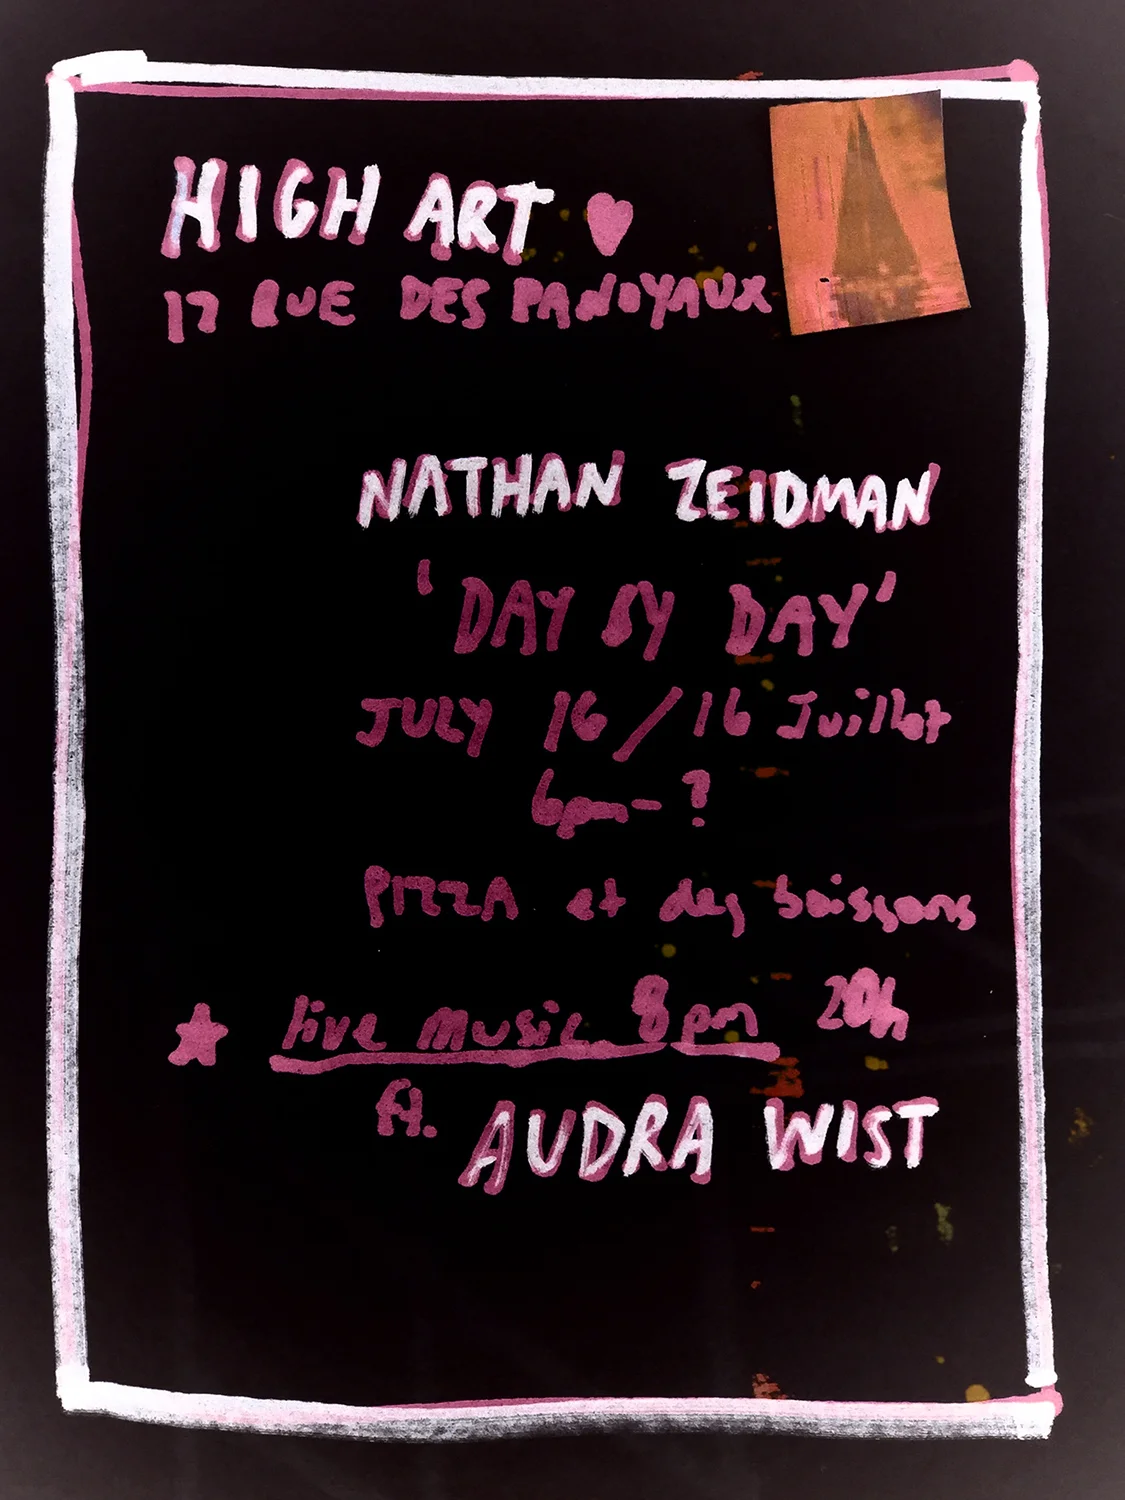 HIGH ART
17 RUE DES PANOYAUX
NATHAN ZEIDMAN
'DAY BY DAY'
JULY 16 / 16 Juillet
6pm - ?
PIZZA et des boissons
live music 8pm 20h
ft. AUDRA WIST